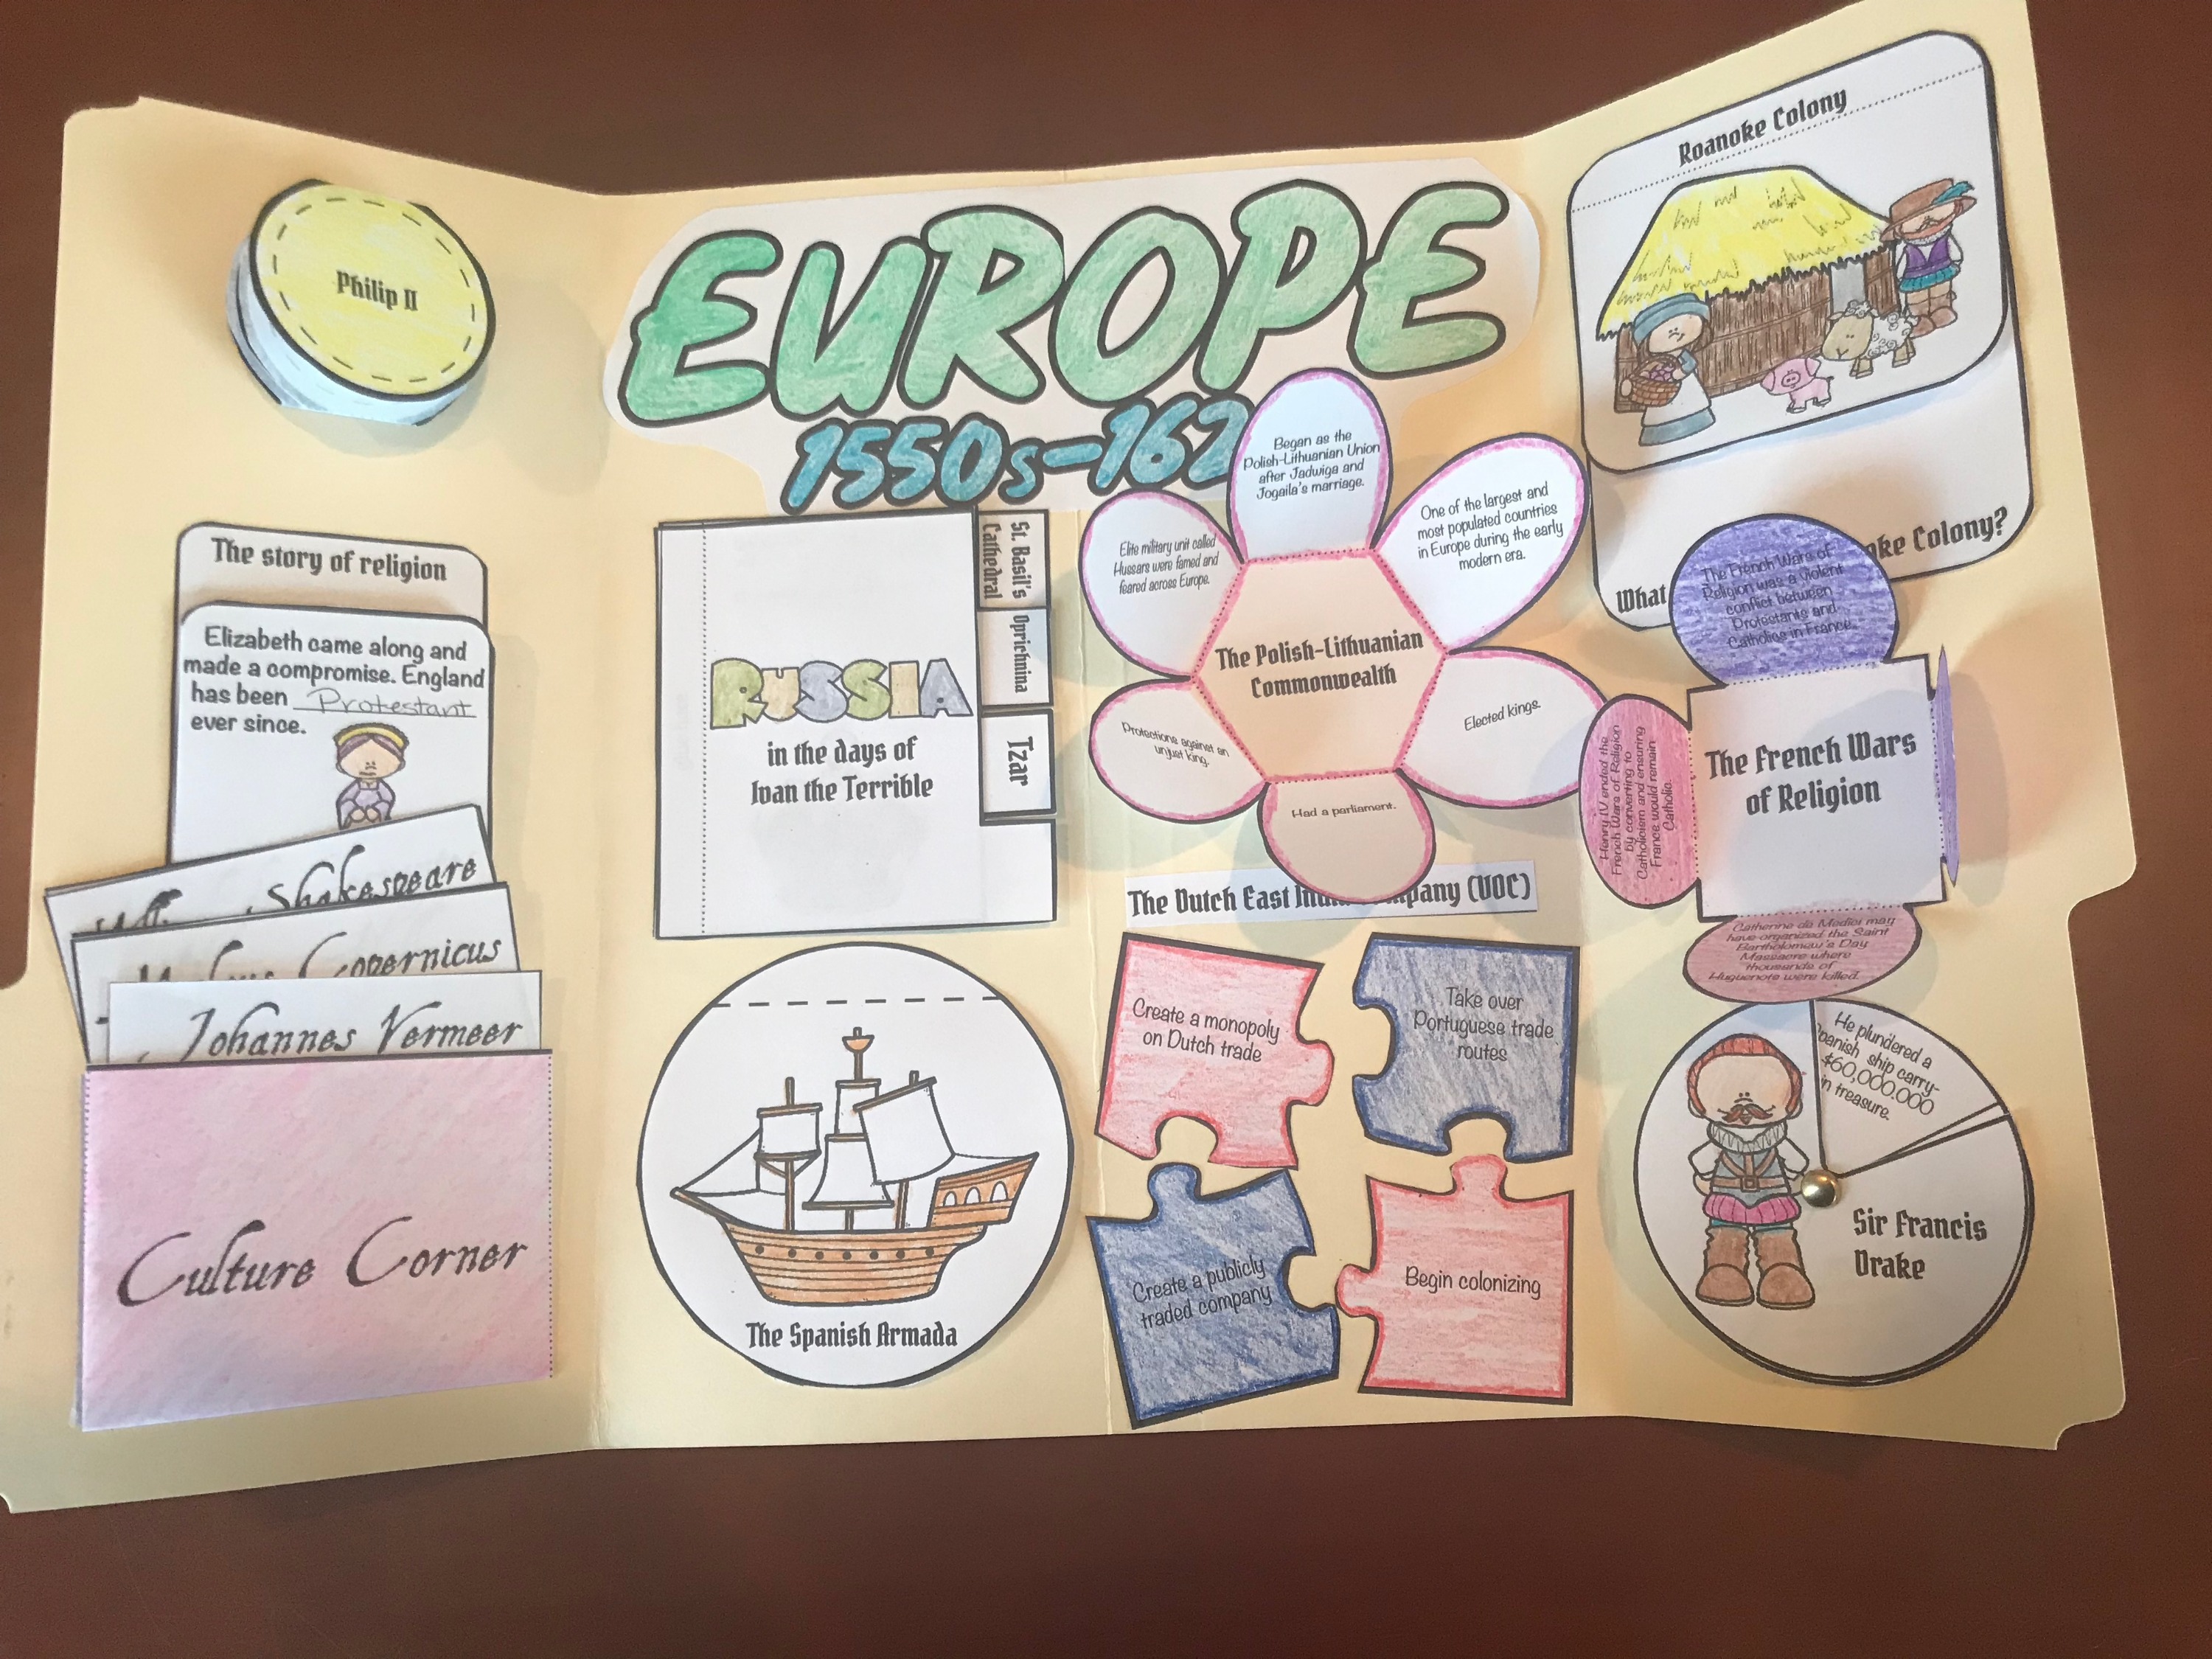 Philip II
The story of religion
Elizabeth came along and
made a compromise. England
has been Protestant
ever since.
Shakespeare
Copernicus
Johannes Vermeer
Culture Corner
EUROPE
1550s-162
RUSSIA
in the days of
Ivan the Terrible
St. Basil's
Cathedral
Oprichnina
Tzar
The Spanish Armada
Began as the
Polish-Lithuanian Union
after Jadwiga and
Jogaila's marriage.
One of the largest and
most populated countries
in Europe during the early
modern era.
Elected kings.
Had a parliament.
Protections against an
unjust king.
Elite military unit called
Hussars were famed and
feared across Europe.
The Polish-Lithuanian
Commonwealth
The Dutch East (VOC)
Create a monopoly
on Dutch trade
Take over
Portuguese trade
routes
Create a publicly
traded company
Begin colonizing
Roanoke Colony
What oke Colony?
The French Wars of
Religion was a violent
conflict between
Protestants and
Catholics in France.
The French Wars
of Religion
Henry IV ended the
French Wars of Religion
by converting to
Catholicism and ensuring
France would remain
Catholic.
Catherine de Medici may
have organized the Saint
Bartholomew's Day
Massacre where
thousands of
Huguenots were killed.
He plundered a
panish ship carry-
$60,000,000
in treasure.
Sir Francis
Drake